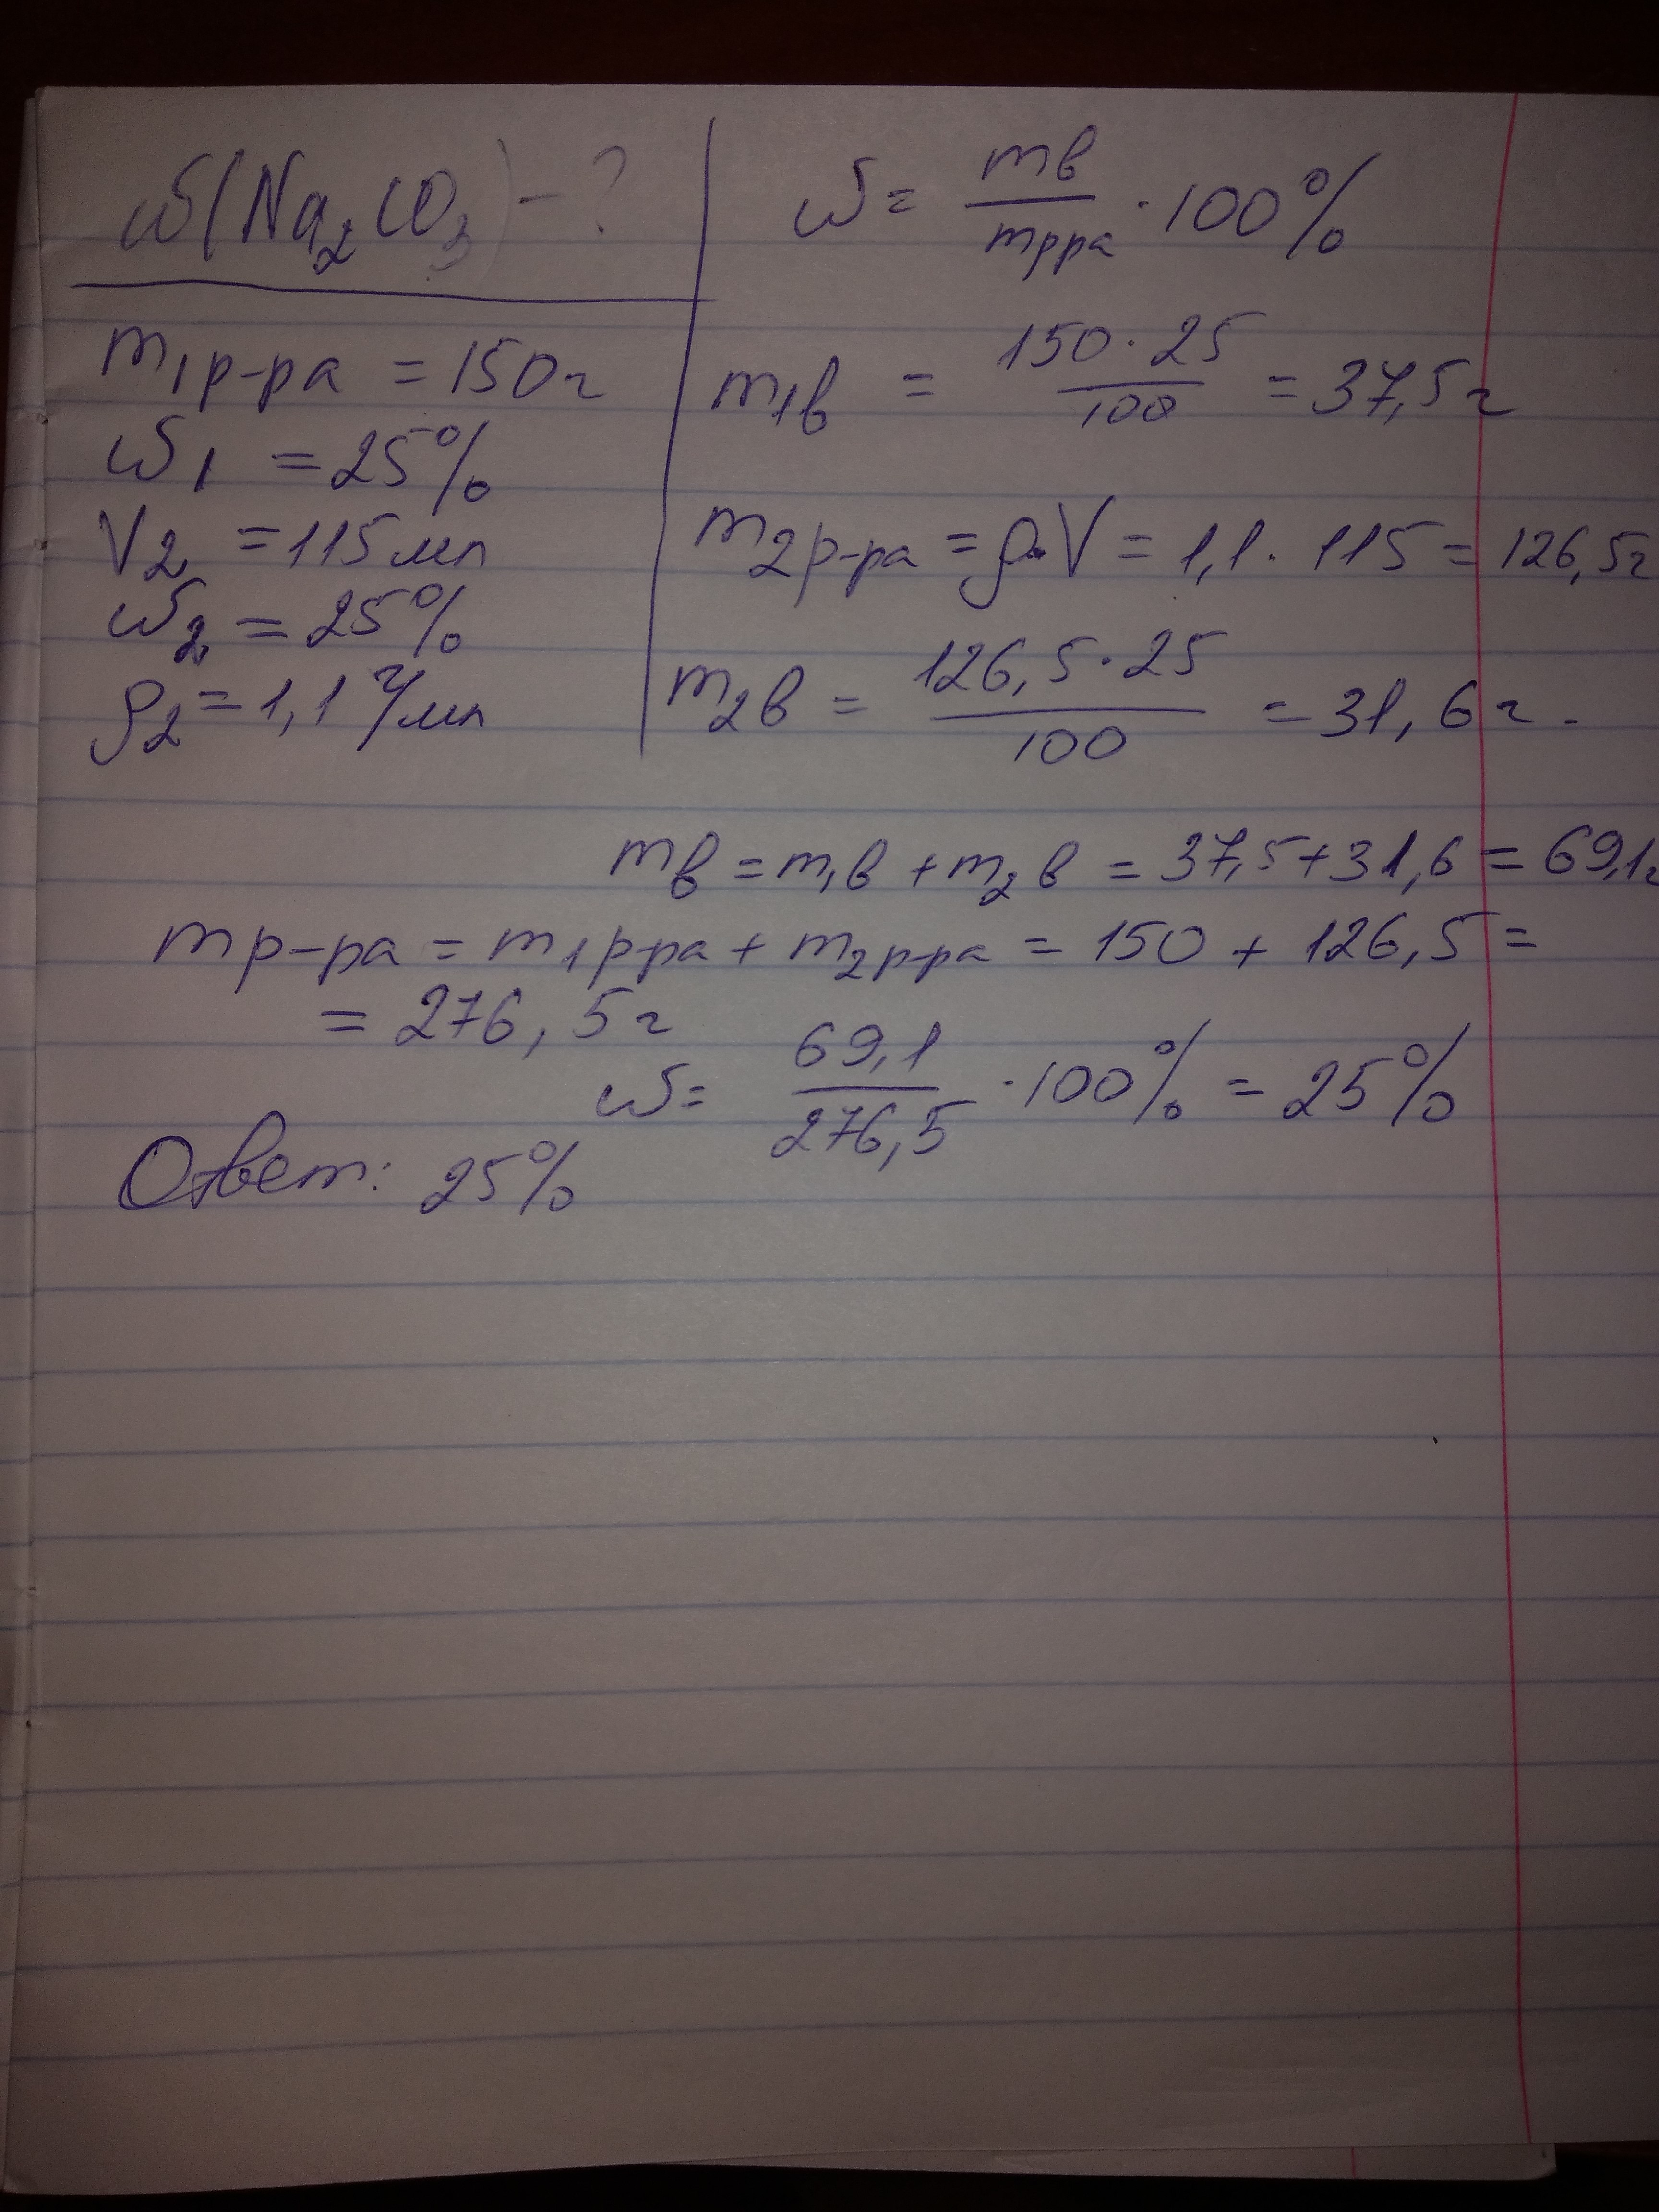 ω(Na₂CO₃) - ?
m₁р-ра = 150г
ω₁ = 25%
V₂ = 115мл
ω₂ = 25%
ρ₂ = 1,1 г/мл
ω = mв/mрра · 100%
m₁в = 150 · 25/100 = 37,5г
m₂р-ра = ρ·V = 1,1 · 115 = 126,5г
m₂в = 126,5 · 25/100 = 31,6г.
mв = m₁в + m₂в = 37,5 + 31,6 = 69,1г
mр-ра = m₁р-ра + m₂р-ра = 150 + 126,5 =
= 276,5г
ω = 69,1/276,5 · 100% = 25%
Ответ: 25%